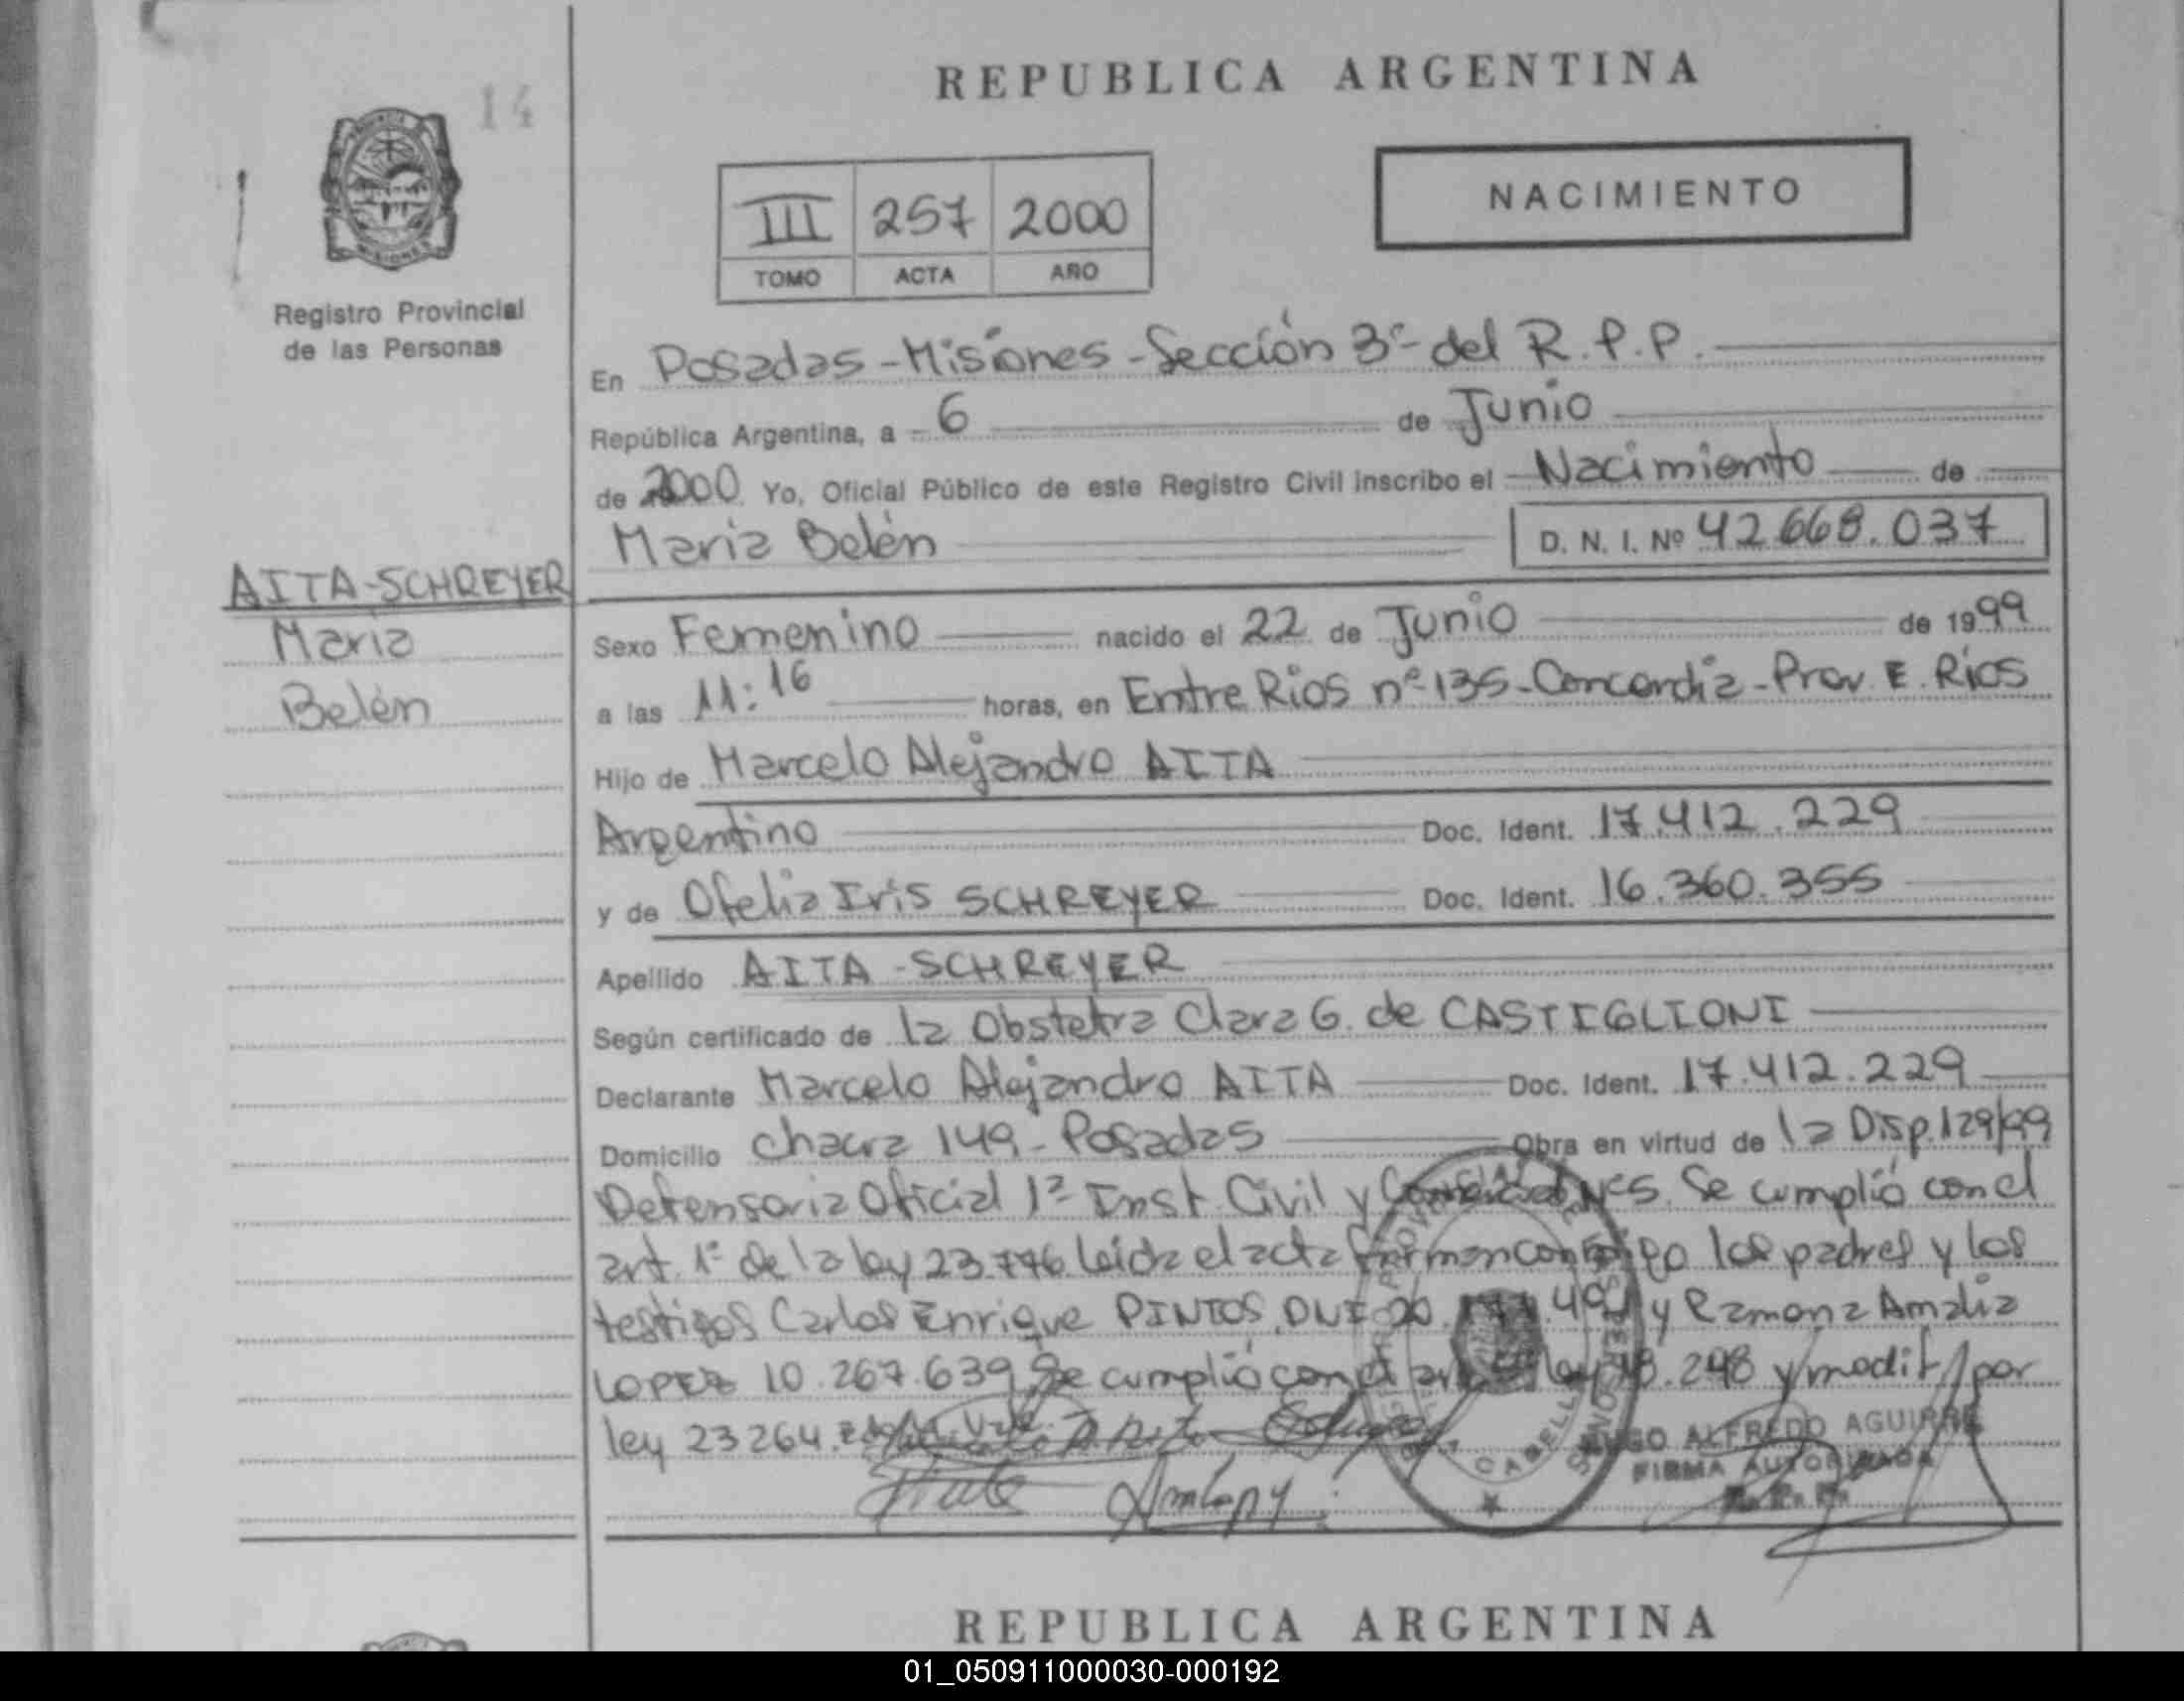 REPUBLICA ARGENTINA
14
III 257 2000
TOMO ACTA AÑO
NACIMIENTO
Registro Provincial
de las Personas
En Posadas - Misiones - Sección 3ª del R.P.P.
República Argentina, a 6 de Junio
de 2000 Yo, Oficial Público de este Registro Civil inscribo el Nacimiento de
Maria Belén D. N. I. Nº 42.668.037
AITA-SCHREYER
Maria
Belén
Sexo Femenino nacido el 22 de Junio de 1999
a las 11:16 horas, en Entre Rios nº 135 - Concordia - Prov. E. Ríos
Hijo de Marcelo Alejandro AITA
Argentino Doc. Ident. 17.412.229
y de Ofelia Iris SCHREYER Doc. Ident. 16.360.355
Apellido AITA - SCHREYER
Según certificado de la Obstetra Clara G. de CASTIGLIONI
Declarante Marcelo Alejandro AITA Doc. Ident. 17.412.229
Domicilio chacra 149 - Posadas Obra en virtud de la Disp. 129/99
Defensoria Oficial 1ª Inst. Civil y Se cumplió con el
art. 1º de la ley 23.776 leida el acta firman conmigo los padres y los
testigos Carlos Enrique PINTOS, DNI 20. y Ramona Amalia
LOPEZ 10.267.639 Se cumplió con el ley 18.248 y modif. por
ley 23264.
HUGO ALFREDO AGUIRRE
FIRMA AUTORIZADA
R. P. P.
REPUBLICA ARGENTINA
01_050911000030-000192